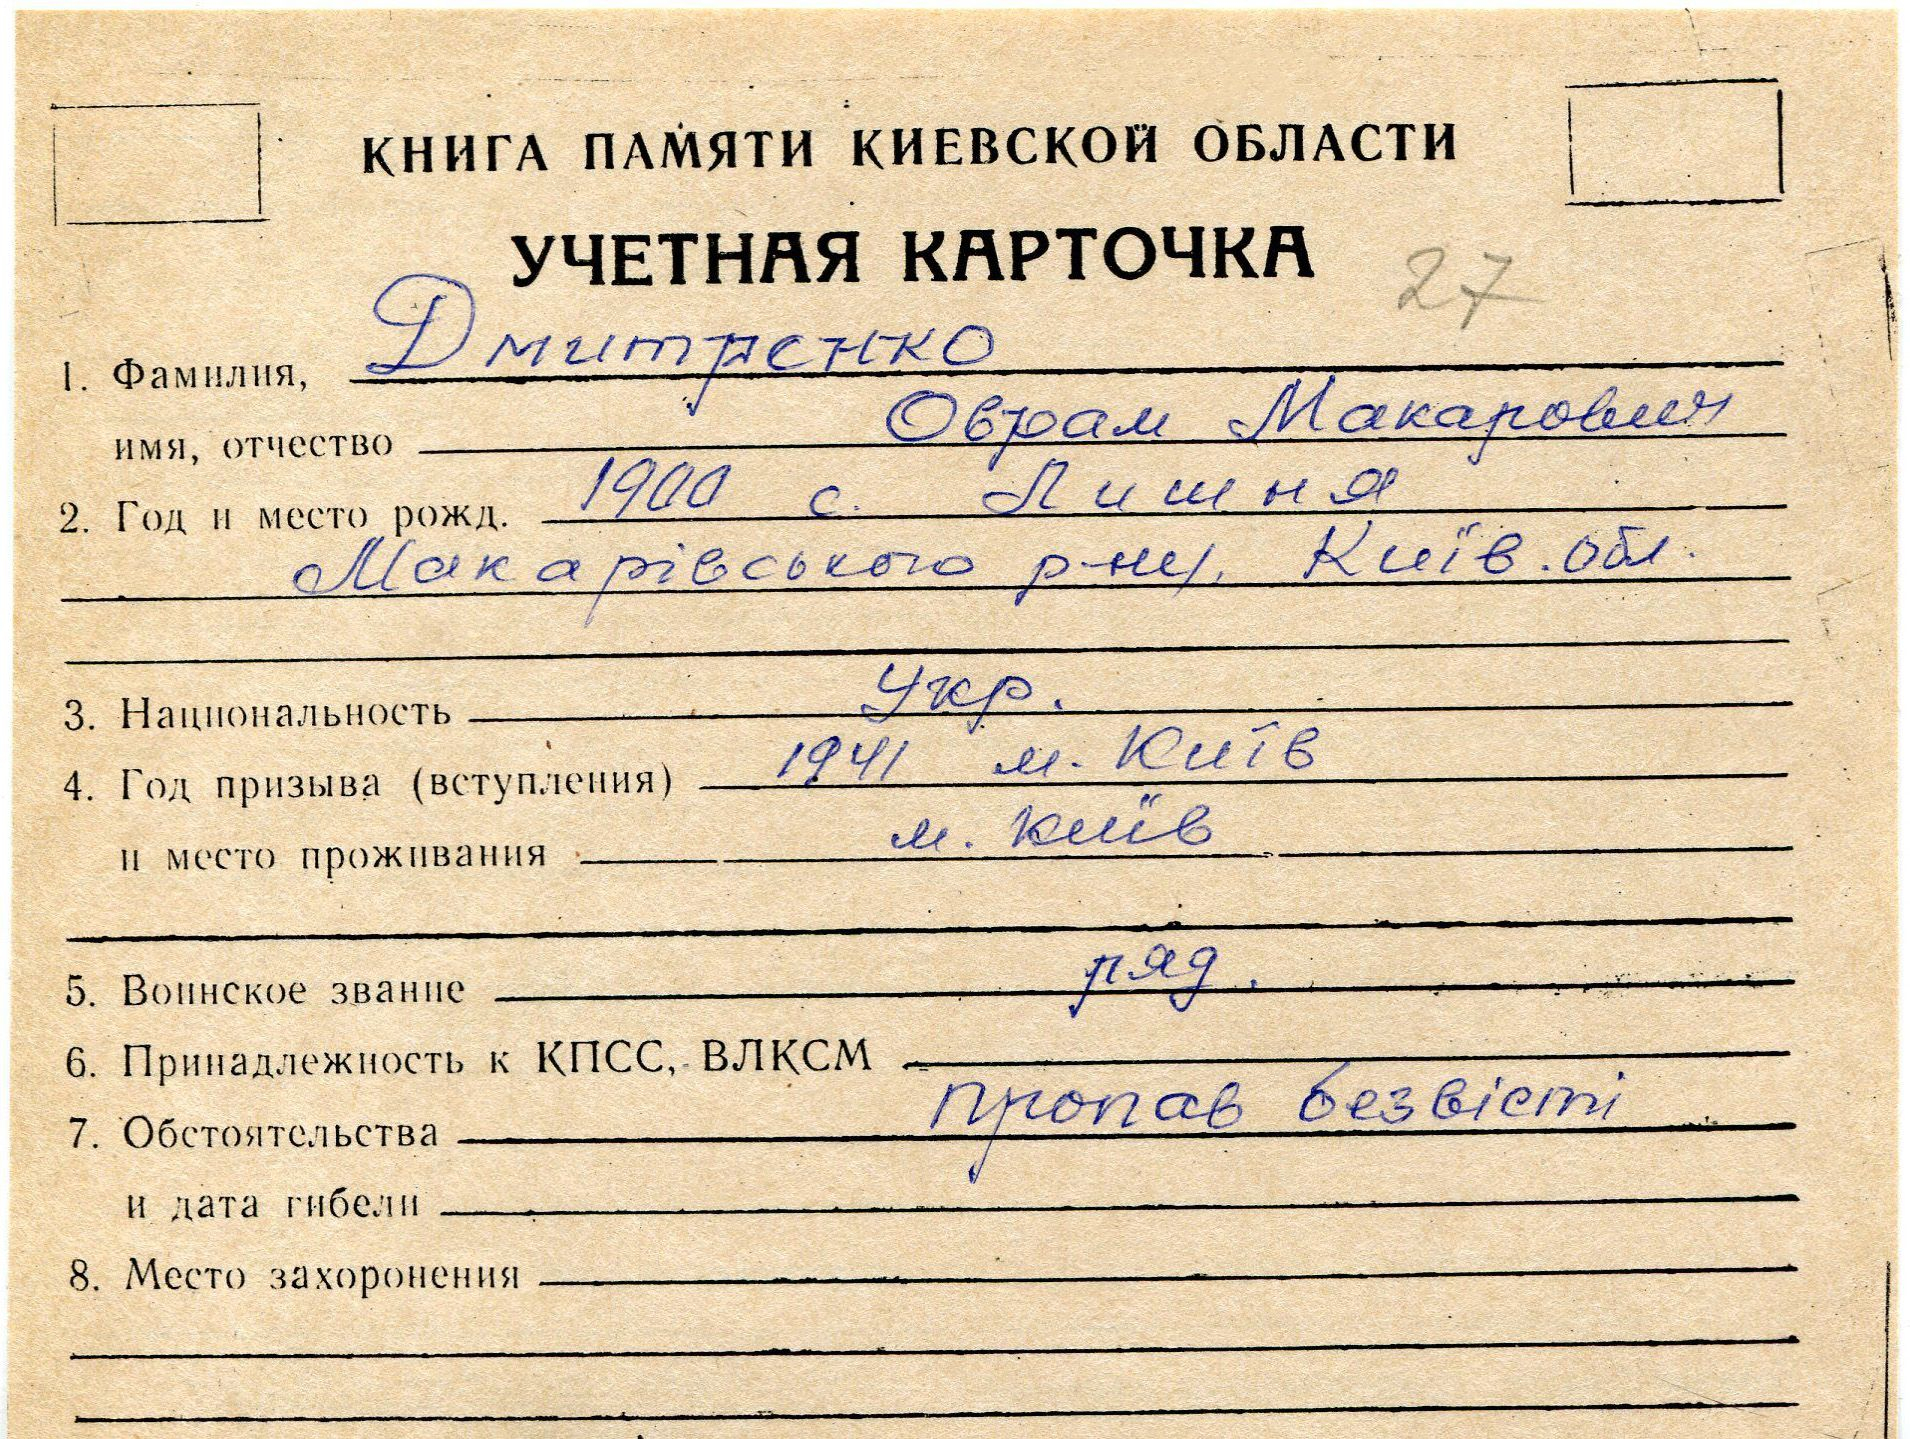 КНИГА ПАМЯТИ КИЕВСКОЙ ОБЛАСТИ
УЧЕТНАЯ КАРТОЧКА
27
1. Фамилия, Дмитренко
имя, отчество Оврам Макарович
2. Год и место рожд. 1900 с. Лишня
Макарівського р-ну, Київ. обл.
3. Национальность Укр.
4. Год призыва (вступления) 1941 м. Київ
и место проживания м. Київ
5. Воинское звание ряд.
6. Принадлежность к КПСС, ВЛКСМ
7. Обстоятельства пропав безвісті
и дата гибели
8. Место захоронения